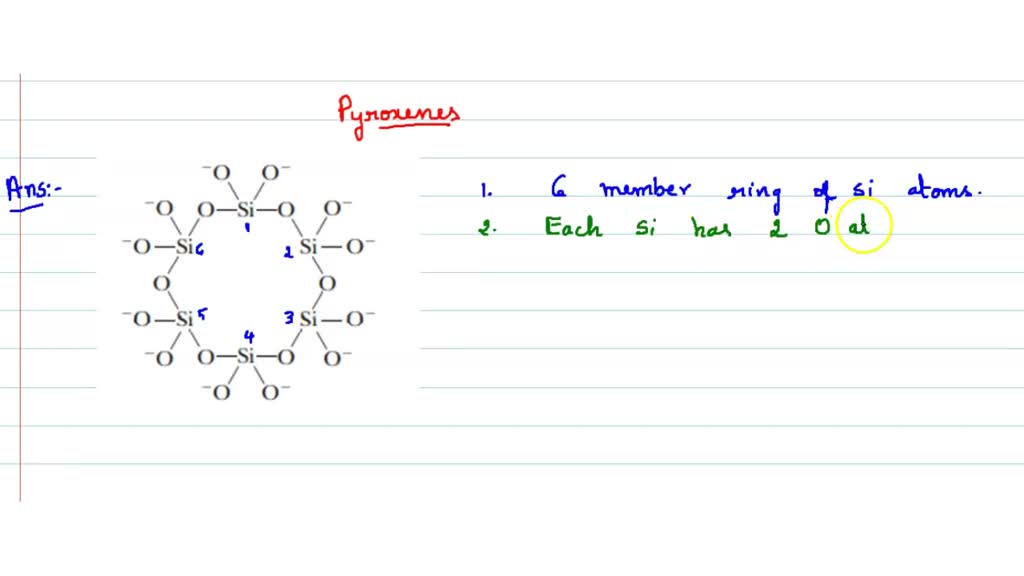 Pyroxenes
Ans:-
1. 6 member ring of si atoms.
2. Each si has 2 O at
⁻O O⁻
⁻O O—Si—O O⁻
1
⁻O—Si6 2 Si—O⁻
O O
⁻O—Si5 3 Si—O⁻
4
⁻O O—Si—O O⁻
⁻O O⁻